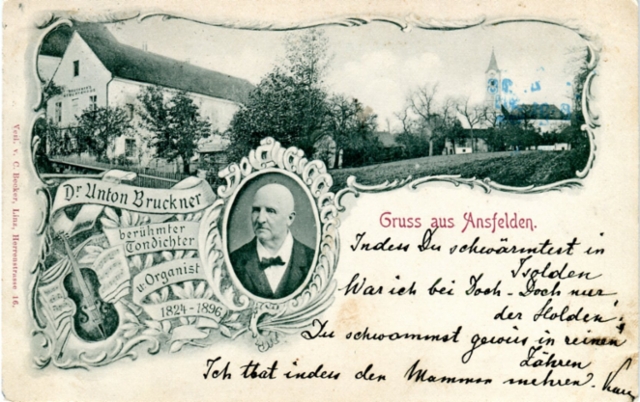 Dr Anton Bruckner
berühmter
Tondichter
u. Organist
1824-1896
Gruss aus Ansfelden.
Indess Du schwärmtest in
Isolden
War ich bei Doch-Doch nur
der Holden!
Du schwammst gewiss in reinen
Zähren
Ich that indess den Mammon mehren.
Verl. v. C. Becker, Linz, Herrenstrasse 16.